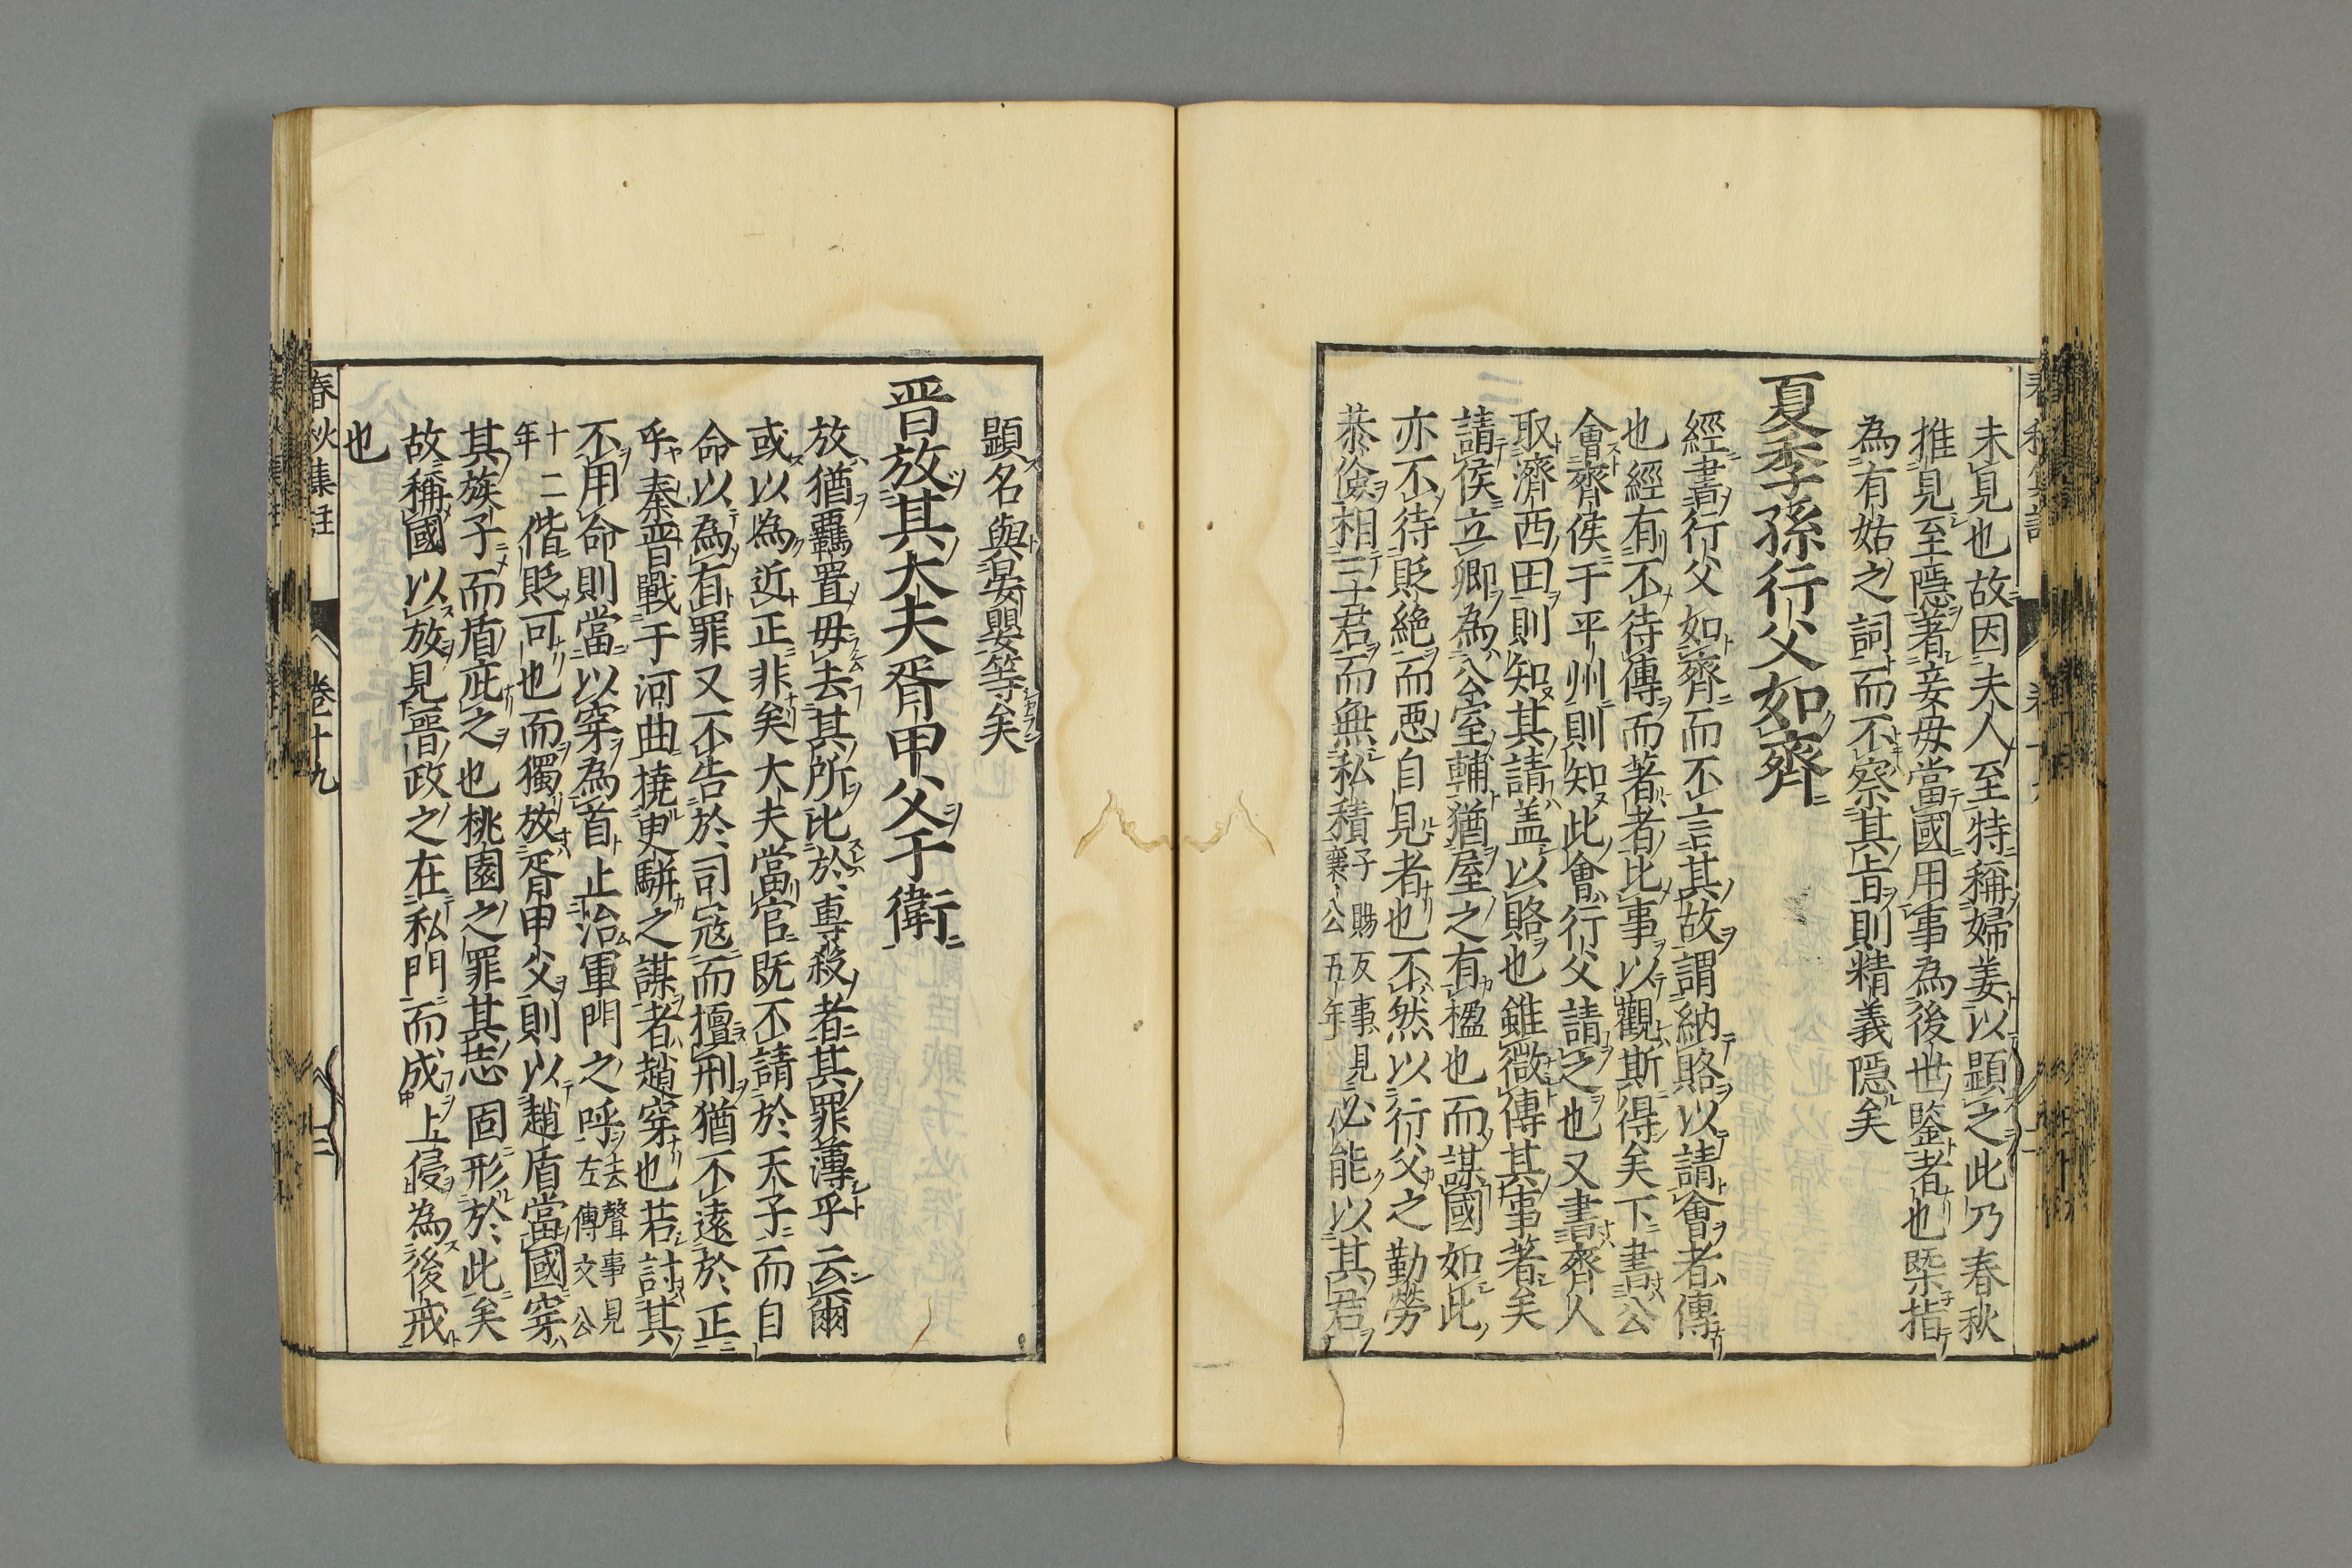 未見也故因夫人至特稱婦姜以顕之此乃春秋
推見至隱著妾母當國用事為後世鑒者也槩指
為有姑之詞而不察其旨則精義隱矣
夏季孫行父如齊
經書行父如齊而不言其故謂納賂以請會者傳
也經有不待傳而著者比事以觀斯得矣下書公
會齊侯于平州則知此會行父請之也又書齊人
取濟西田則知其請盖以賂也雖微傳其事著矣
請侯立卿為公室輔猶屋之有楹也而謀國如此
亦不待貶絶而惡自見者也不然以行父之勤勞
恭儉相三君而無私積子賜反事見襄公五年必能以其君
顕名與晏嬰等矣
晋放其大夫胥甲父于衛
放猶羈置毋去其所比於專殺者其罪薄乎云爾
或以為近正非矣大夫當官既不請於天子而自
命以為有罪又不告於司寇而擅刑猶不遠於正
乎秦晋戰于河曲撓臾駢之謀者趙穿也若討其
不用命則當以穿為首止治軍門之呼去聲事見左傳文公
十二年偕貶可也而獨放胥甲父則以趙盾當國穿
其族子而盾庇之也桃園之罪其志固形於此矣
故稱國以放見晋政之在私門而成上侵為後戒
也
春秋集註 卷十九 三